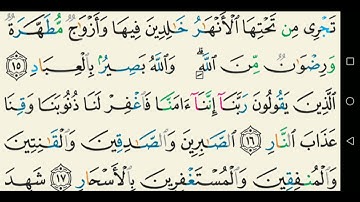 تَجْرِى مِن تَحْتِهَا ٱلْأَنْهَٰرُ خَٰلِدِينَ فِيهَا وَأَزْوَٰجٌ مُّطَهَّرَةٌ
وَرِضْوَٰنٌ مِّنَ ٱللَّهِ ۗ وَٱللَّهُ بَصِيرٌۢ بِٱلْعِبَادِ ١٥
ٱلَّذِينَ يَقُولُونَ رَبَّنَآ إِنَّنَآ ءَامَنَّا فَٱغْفِرْ لَنَا ذُنُوبَنَا وَقِنَا
عَذَابَ ٱلنَّارِ ١٦ ٱلصَّٰبِرِينَ وَٱلصَّٰدِقِينَ وَٱلْقَٰنِتِينَ
وَٱلْمُنفِقِينَ وَٱلْمُسْتَغْفِرِينَ بِٱلْأَسْحَارِ ١٧ شَهِدَ